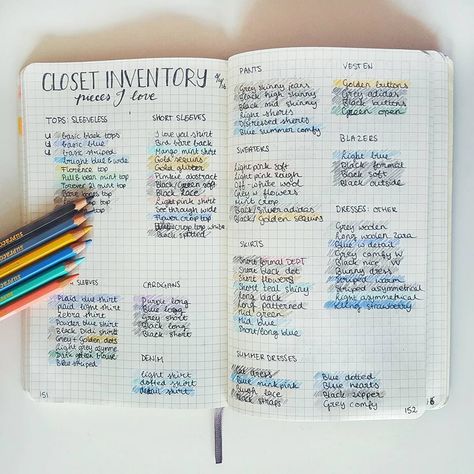 CLOSET INVENTORY
pieces I love
TOPS: SLEEVELESS
u basic black tops
u basic blue
u basic striped
Bright blue & wide
Florence top
Pull & bear mint top
Forever 21 mint top
top
top
SLEEVES
Plaid blue shirt
Plaid shirt
Zebra shirt
Powder blue shirt
Black Didi shirt
Grey + Golden dots
Light grey
Dark green blouse
Blue striped
151
SHORT SLEEVES
I love you shirt
Bird bare back
Mango mint shirt
Gold sequins
Gold glitter
Pimkie abstract
Black/Green soft
Black lace
Light pink shirt
See through wide
Flower crop top
crop top white
Black spotted
CARDIGANS
Purple long
Blue long
Grey short
Black long
Black short
DENIM
light shirt
dotted shirt
detail shirt
PANTS
Grey skinny jeans
Black high skinny
Black mid skinny
Light shorts
Distressed shorts
Blue summer comfy
SWEATERS
Light pink soft
Light pink rough
Off-white wool
Grey w flowers
Mint crop
Black/Silver adidas
Black/ Golden sequins
SKIRTS
Short formal DEPT
Short black dot
Short flowers
Short teal shiny
Long black
Long patterned
Mid green
Mid blue
Short/long blue
SUMMER DRESSES
Red dress
Blue mink pink
lace
Black straps
VESTEN
Golden buttons
Grey short
Black buttons
Green open
BLAZERS
Light blue
Black formal
Black soft
Black outside
DRESSES: OTHER
Grey woolen
Long woolen Zara
Blue w detail
Grey comfy W
Black nice W
Bunny dress
Striped warm
Striped asymmetrical
Light asymmetrical
strawberry
Blue dotted
Blue hearts
Black zipper
Grey comfy
152